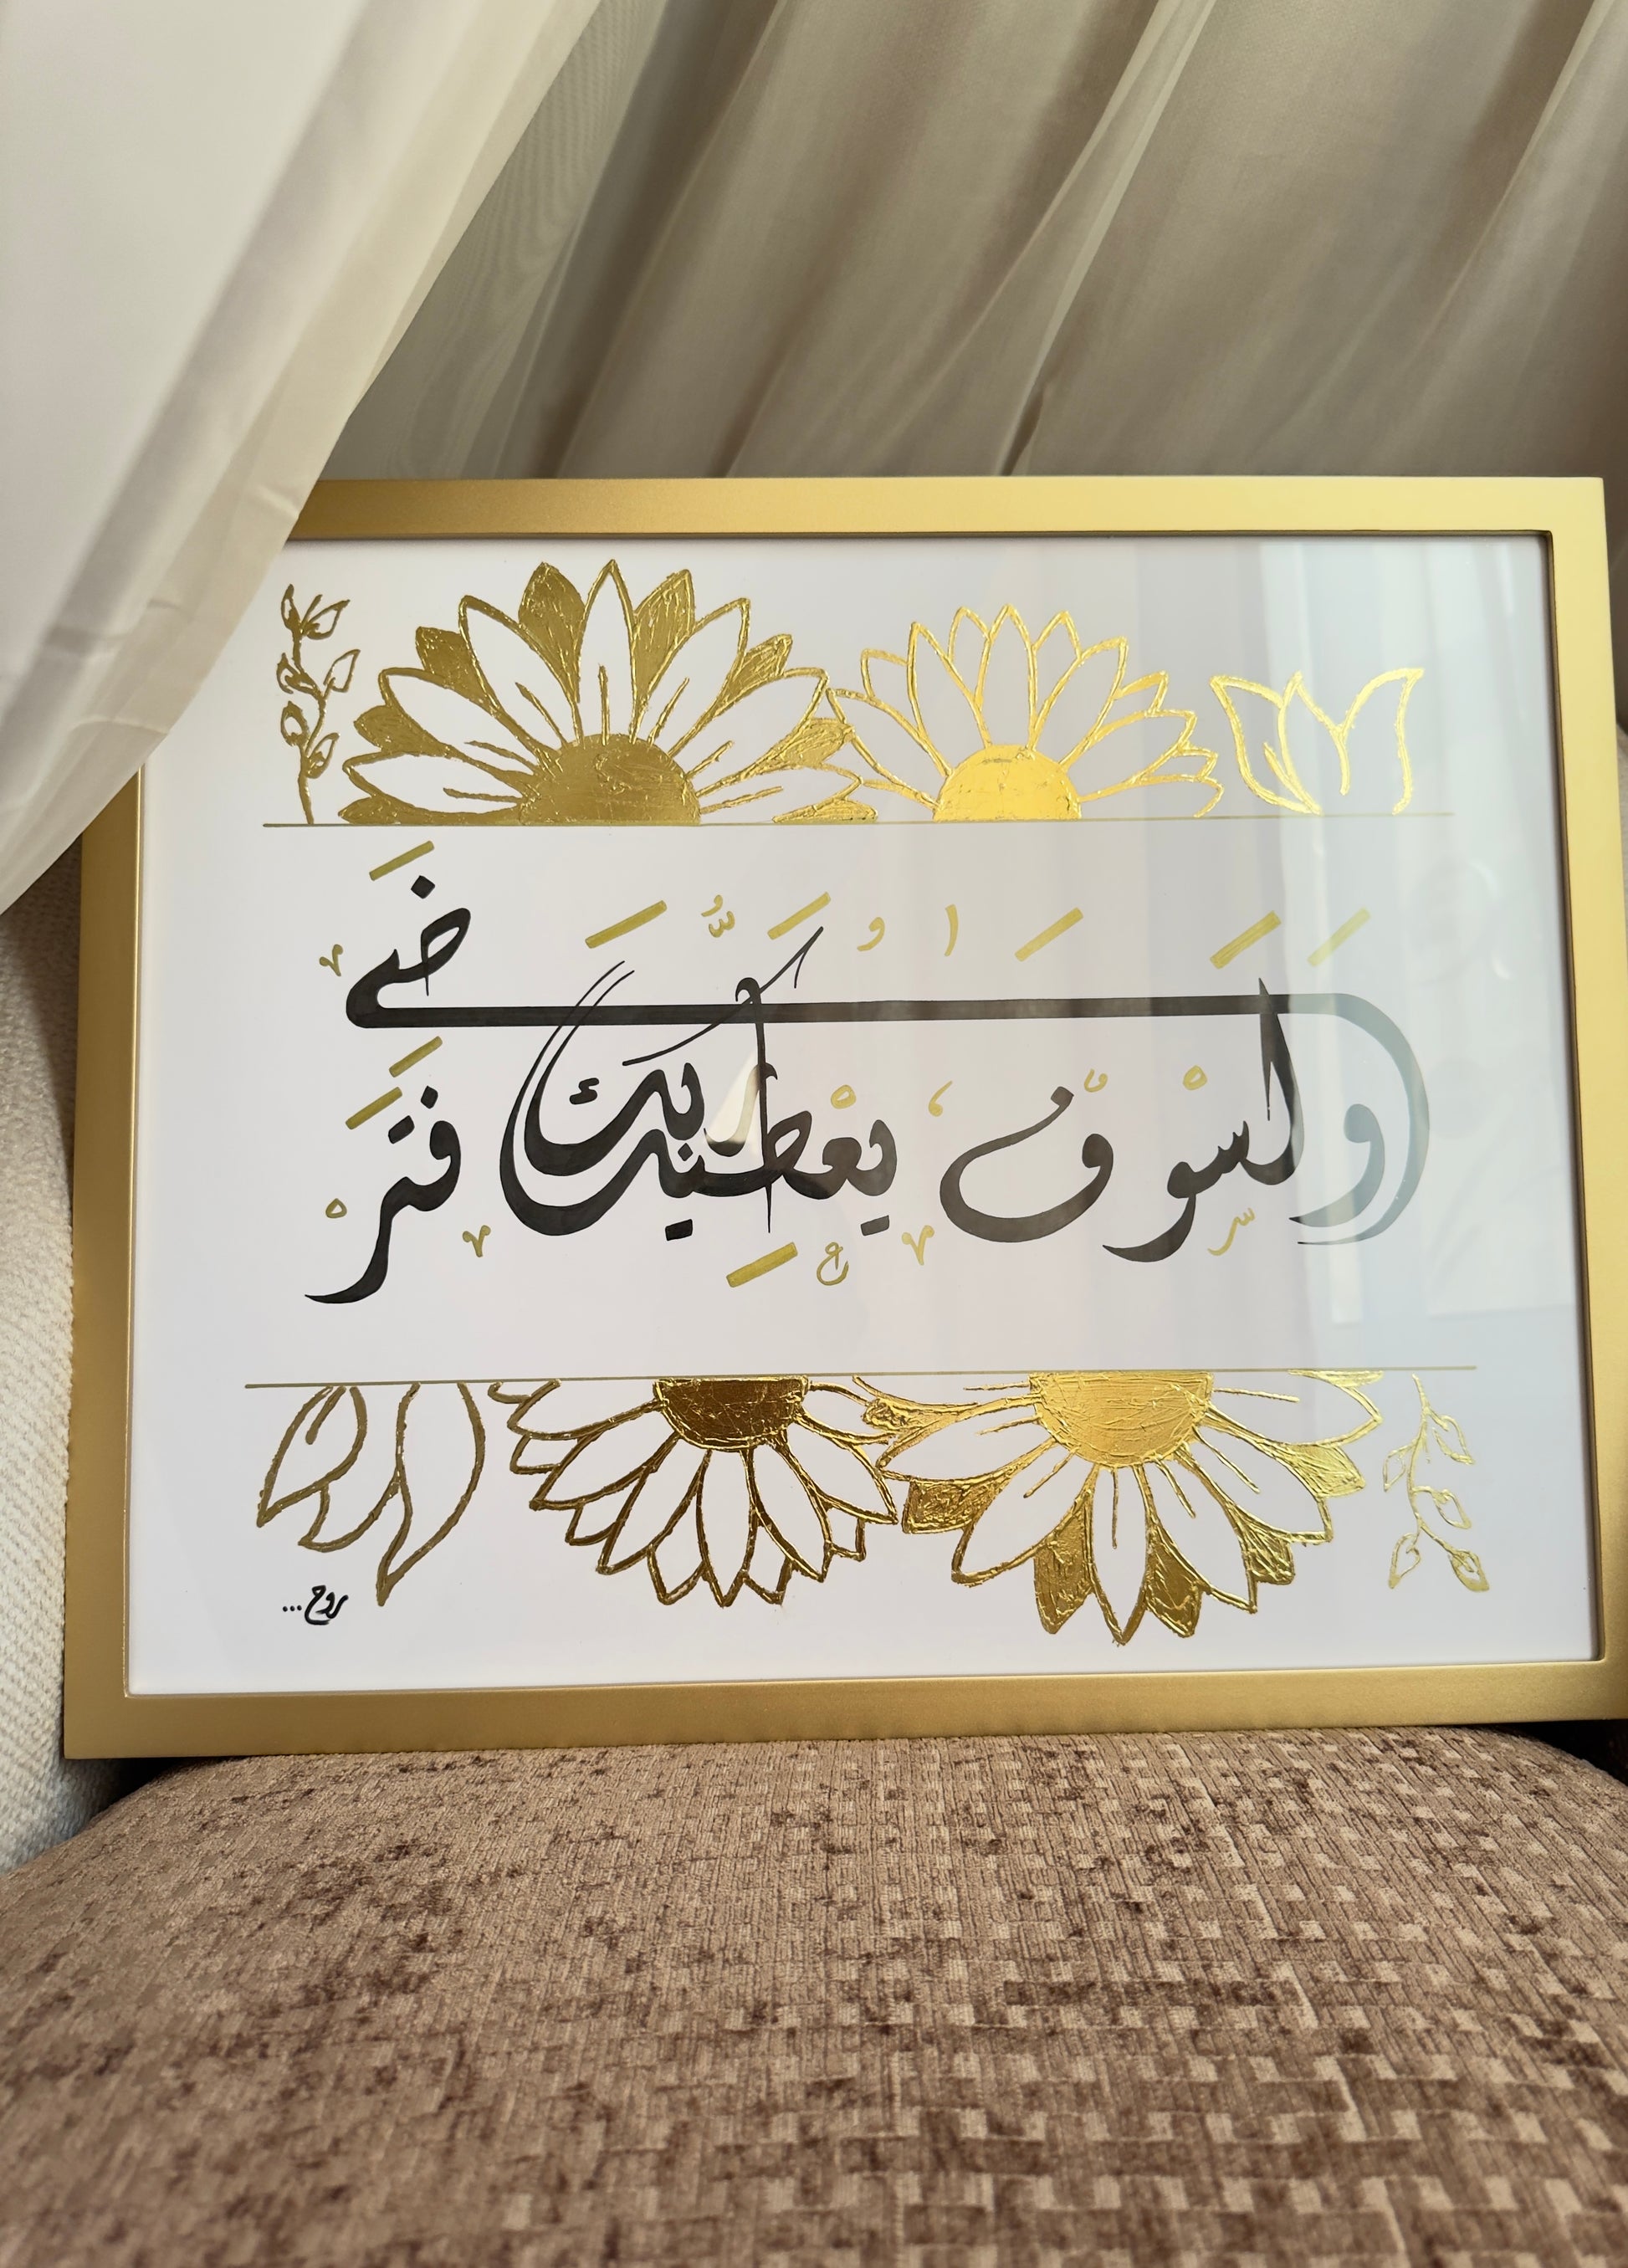 وَلَسَوْفَ يُعْطِيكَ رَبُّكَ فَتَرْضَى
روح...